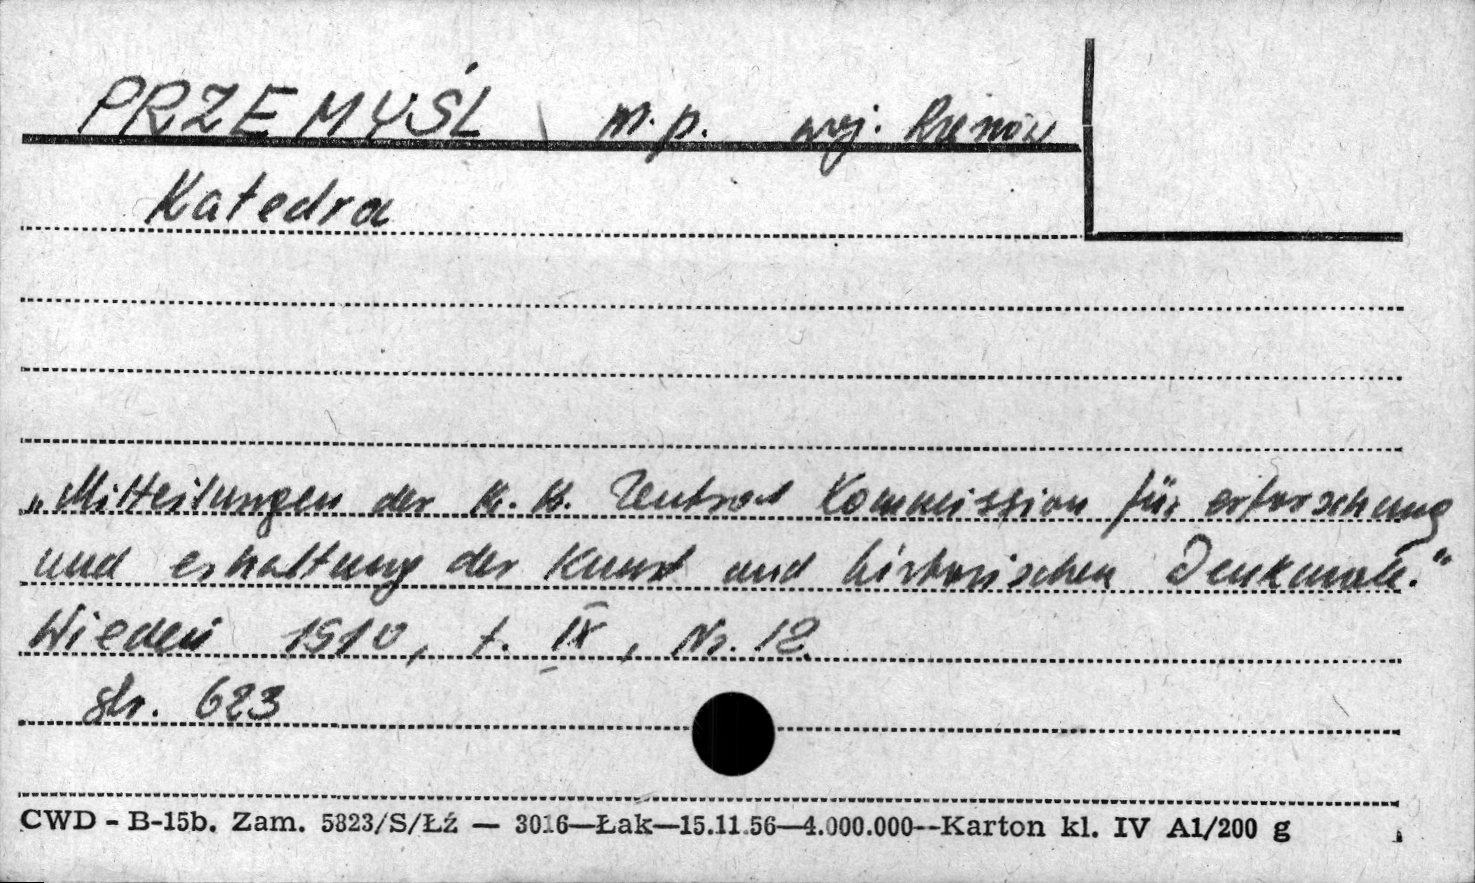 PRZEMYŚL m.p. woj. Rzeszów
Katedra
„Mitteilungen der K. K. Zentral Kommission für erforschung
und erhaltung der Kunst und historischen Denkmale."
Wiedeń 1910, t. IX, Nr. 12.
str. 623
CWD - B-15b. Zam. 5823/S/Łź — 3016—Łak—15.11.56—4.000.000--Karton kl. IV A1/200 g